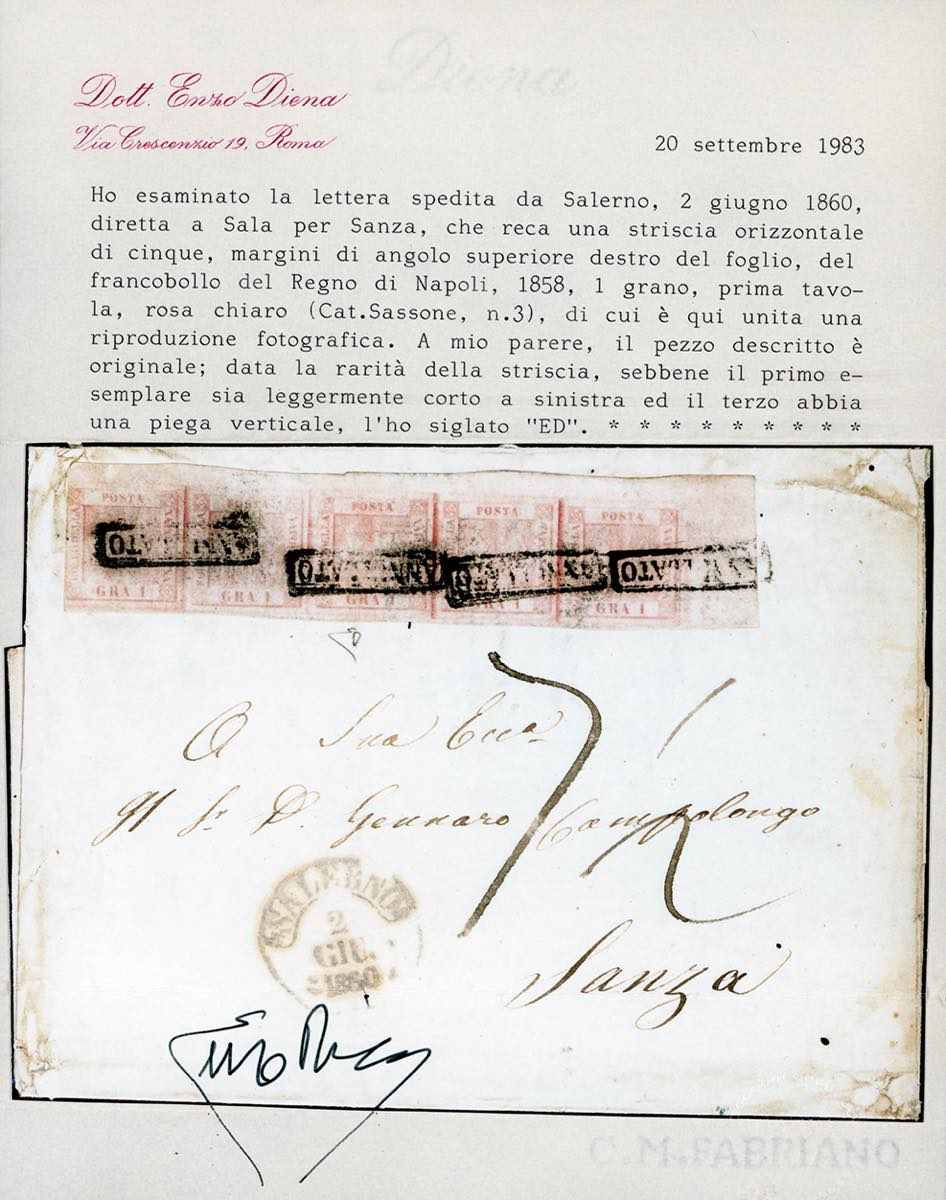 Diena
Dott. Enzo Diena
Via Crescenzio 19, Roma
20 settembre 1983
Ho esaminato la lettera spedita da Salerno, 2 giugno 1860,
diretta a Sala per Sanza, che reca una striscia orizzontale
di cinque, margini di angolo superiore destro del foglio, del
francobollo del Regno di Napoli, 1858, 1 grano, prima tavo-
la, rosa chiaro (Cat.Sassone, n.3), di cui è qui unita una
riproduzione fotografica. A mio parere, il pezzo descritto è
originale; data la rarità della striscia, sebbene il primo e-
semplare sia leggermente corto a sinistra ed il terzo abbia
una piega verticale, l'ho siglato "ED". * * * * * * * * *
POSTA POSTA POSTA POSTA
ANNULLATO ANNULLATO ANNULLATO ANNULLATO
GRA 1 GRA 1 GRA 1 GRA 1 GRA 1
A Sua Ecca
Sr D. Gennaro Campolongo
SALERNO
2
GIU.
1860
Sanza
Enzo Diena
C.M.FABRIANO